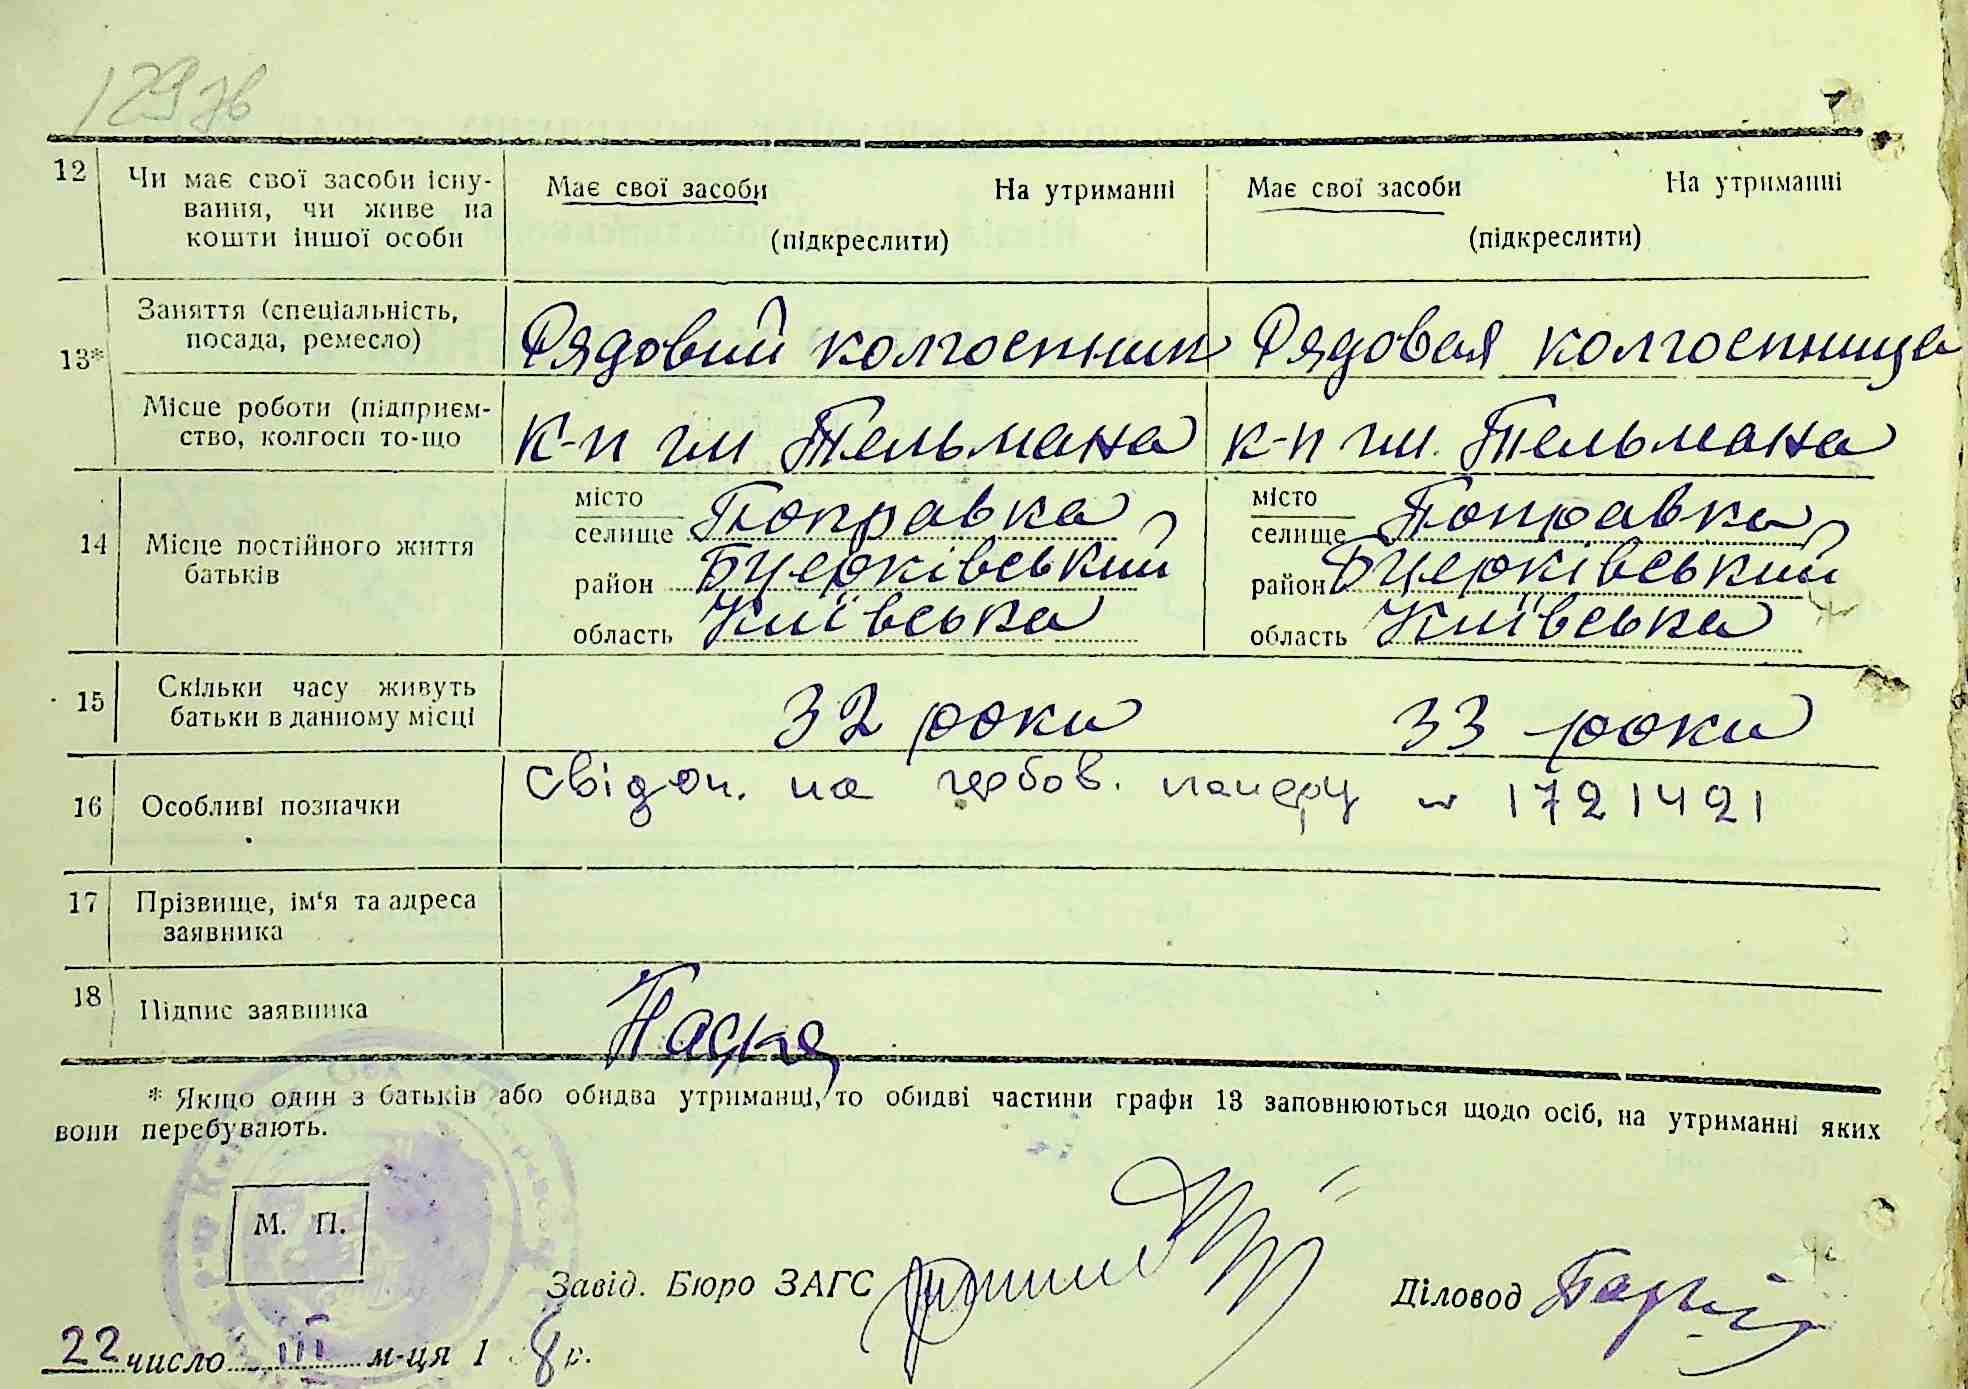 12
Чи має свої засоби існу-
вання, чи живе на
кошти іншої особи
Має свої засоби На утриманні
(підкреслити)
Має свої засоби На утриманні
(підкреслити)
13*
Заняття (спеціальність,
посада, ремесло)
Рядовий колгоспник
Рядовая колгоспница
Місце роботи (підприєм-
ство, колгосп то-що
К-п ім Тельмана
к-п ім. Тельмана
14
Місце постійного життя
батьків
місто
селище Поправка
район Бцерківський
область Київська
місто
селище Поправка
район Бцерківський
область Київська
15
Скільки часу живуть
батьки в данному місці
32 роки
33 роки
16
Особливі позначки
Свідоц. на гербов. паперу № 1721421
17
Прізвище, ім'я та адреса
заявника
18
Підпис заявника
* Якщо один з батьків або обидва утриманці, то обидві частини графи 13 заповнюються щодо осіб, на утриманні яких
вони перебувають.
М. П.
Завід. Бюро ЗАГС
Діловод
22 число III м-ця 1 8 р.